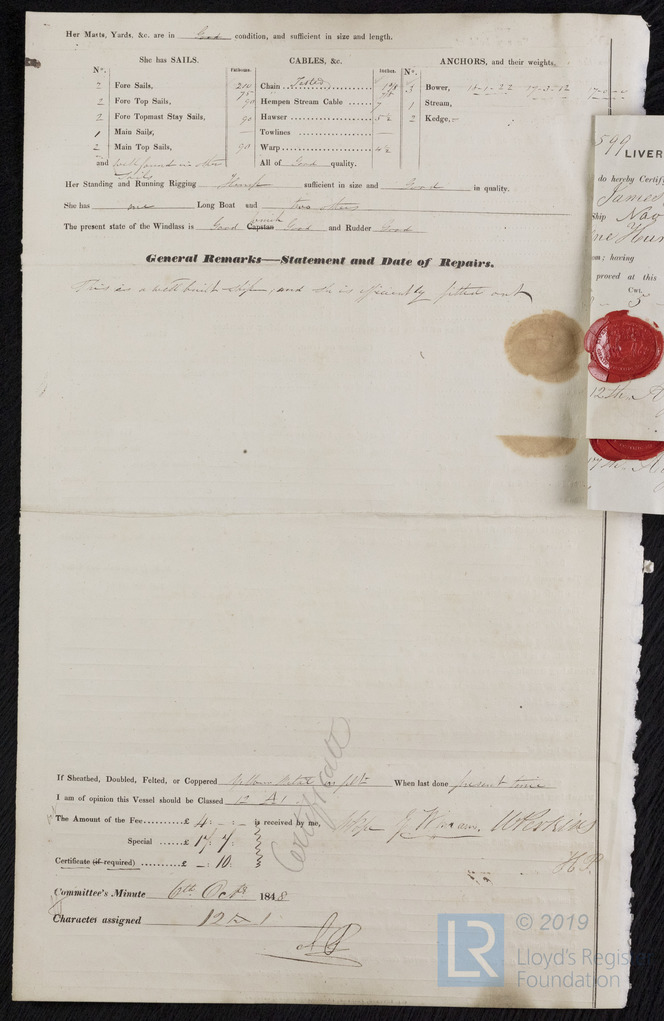 Her Masts, Yards, &c. are in Good condition, and sufficient in size and length.
She has SAILS.
CABLES, &c.
ANCHORS, and their weights.
N°.
Fathoms.
Inches.
N°.
2 Fore Sails,
2 Fore Top Sails,
2 Fore Topmast Stay Sails,
1 Main Sails,
2 Main Top Sails,
and well found in other Sails
Chain Tested 210 75
Hempen Stream Cable 90 7
Hawser 90 5½
Towlines — —
Warp 90 4½
All of Good quality.
3 Bower,
1 Stream,
2 Kedge,
Her Standing and Running Rigging Hemp sufficient in size and Good in quality.
She has one Long Boat and two others
The present state of the Windlass is Good Capstan winch Good and Rudder Good
General Remarks—Statement and Date of Repairs.
This is a well built ship, and she is efficiently fitted out
599
LIVER
do hereby Certif
James
Ship Nao
having
proved at this
Cwt.
5
12th. A
17th. A
Certificate
If Sheathed, Doubled, Felted, or Coppered Yellow Metal on felt When last done present time
I am of opinion this Vessel should be Classed 12 A1
The Amount of the Fee £ 4 : - : - is received by me,
Special £ 17 : 7 :
Certificate (if required) £ - : 10 :
Committee's Minute 6th Octr 1848
Character assigned 12 A 1
© 2019
LR
Lloyd's Register
Foundation